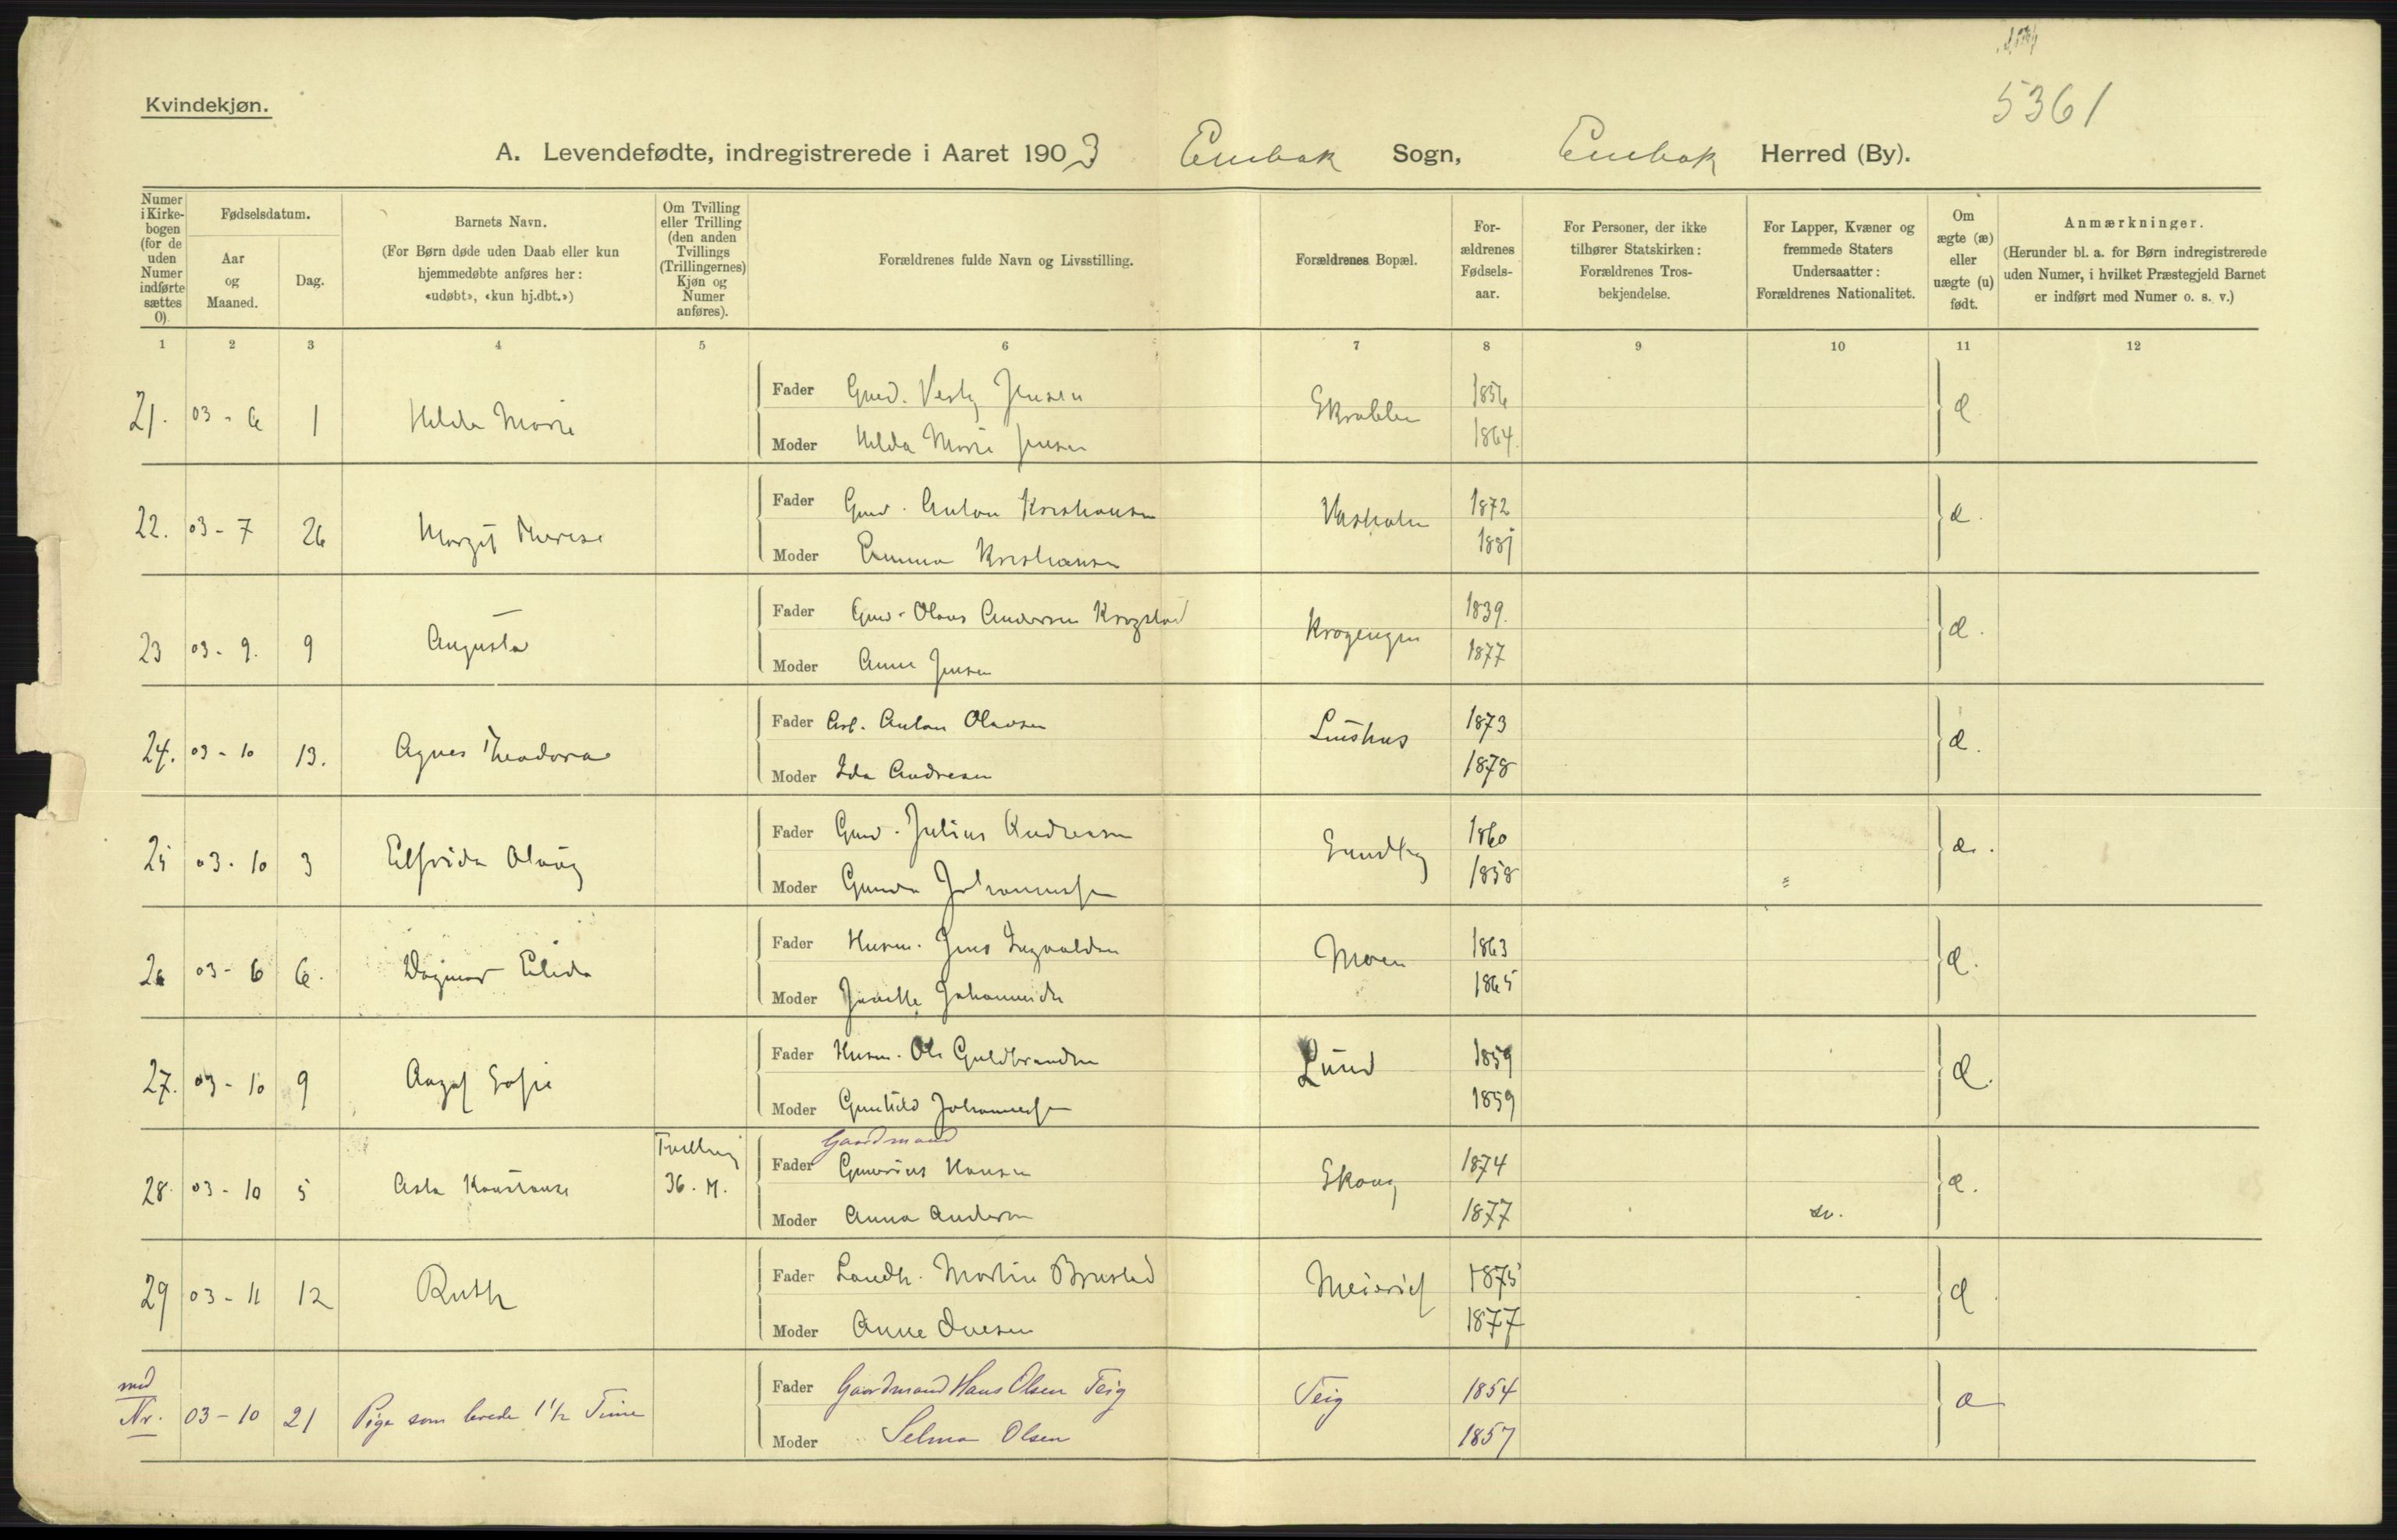 Kvindekjøn.
5361
A. Levendefødte, indregistrerede i Aaret 1903 Enebak Sogn, Enebak Herred (By).
Numer i Kirkebogen (for de uden Numer indførte sættes 0).
Fødselsdatum.
Aar og Maaned.
Dag.
Barnets Navn.
(For Børn døde uden Daab eller kun hjemmedøbte anføres her: «udøbt», «kun hj.dbt.»)
Om Tvilling eller Trilling (den anden Tvillings (Trillingernes) Kjøn og Numer anføres).
Forældrenes fulde Navn og Livsstilling.
Forældrenes Bopæl.
For-ældrenes Fødsels-aar.
For Personer, der ikke tilhører Statskirken: Forældrenes Tros-bekjendelse.
For Lapper, Kvæner og fremmede Staters Undersaatter: Forældrenes Nationalitet.
Om ægte (æ) eller uægte (u) født.
Anmærkninger.
(Herunder bl. a. for Børn indregistrerede uden Numer, i hvilket Præstegjeld Barnet er indført med Numer o. s. v.)
1 2 3 4 5 6 7 8 9 10 11 12
21. 03 - 6 1 Hilda Marie Fader Gmd. Jensen 1856 æ
Moder Hilda Marie Jensen 1864.
22. 03 - 7 26 Margit Therese Fader Gmd. Anton Kristiansen 1872 æ.
Moder Emma Kristiansen 1881
23 03 - 9. 9 Augusta Fader Gmd. Olaus Andersen Krogstad Krogengen 1839. æ.
Moder Anne Jensen 1877
24. 03 - 10 13. Agnes Theodora Fader Arb. Anton Olavsen 1873 æ.
Moder Ida Andresen 1878
25 03 - 10 3 Elfrida Olaug Fader Gmd. Julius Andresen Sundby 1860 æ.
Moder Gunda Johannessen 1858
26 03 - 6 6. Dagmar Elida Fader Husm. Jens Ingvaldsen Moen 1863 æ.
Moder 1865
27. 03 - 10 9 Aagot Sofie Fader Husm. Ole Guldbrandsen Lund 1859 æ.
Moder Gunhild Johannessen 1859
28. 03 - 10 5 Asta Konstanse Tvilling 36. M. Gaardmand
Fader Hansen Skaug 1874 æ.
Moder Anna Andersen 1877 sv.
29 03 - 11 12 Ruth Fader Landh. Martin Brustad Meieriet 1875 æ
Moder Anne Iversen 1877
Nr. 03 - 10 21 Pige som levede 1 1/2 Time Fader Gaardmand Hans Olsen Teig Teig 1854 æ
Moder Selma Olsen 1857